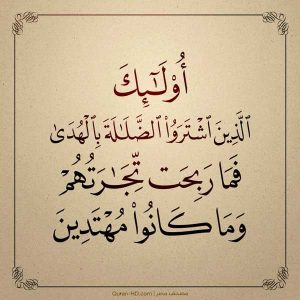 أُوْلَـٰٓئِكَ
ٱلَّذِينَ ٱشْتَرَوُاْ ٱلضَّلَـٰلَةَ بِٱلْهُدَىٰ
فَمَا رَبِحَت تِّجَـٰرَتُهُمْ
وَمَا كَانُواْ مُهْتَدِينَ
Quran-HD.com